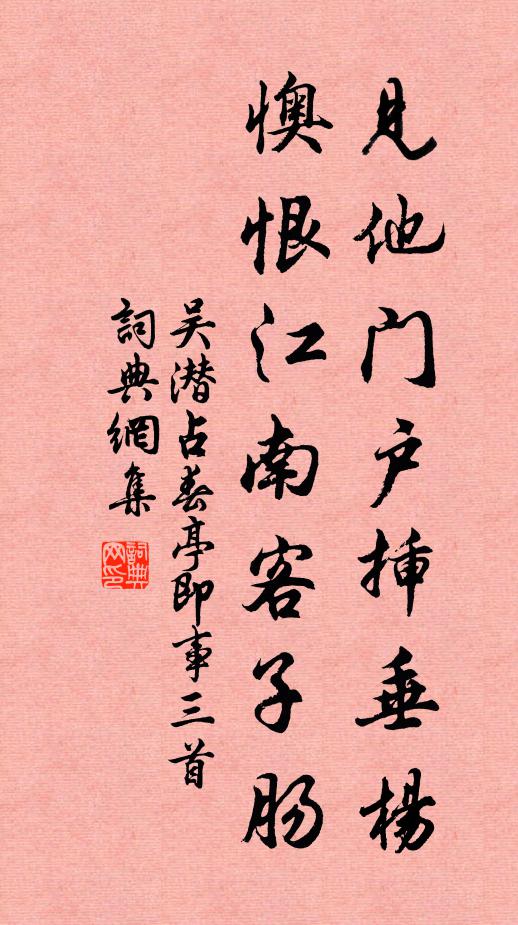 见他门户插垂杨
懊恨江南客子肠
吴潜占春亭即事三首
詞典網集
詞典网印